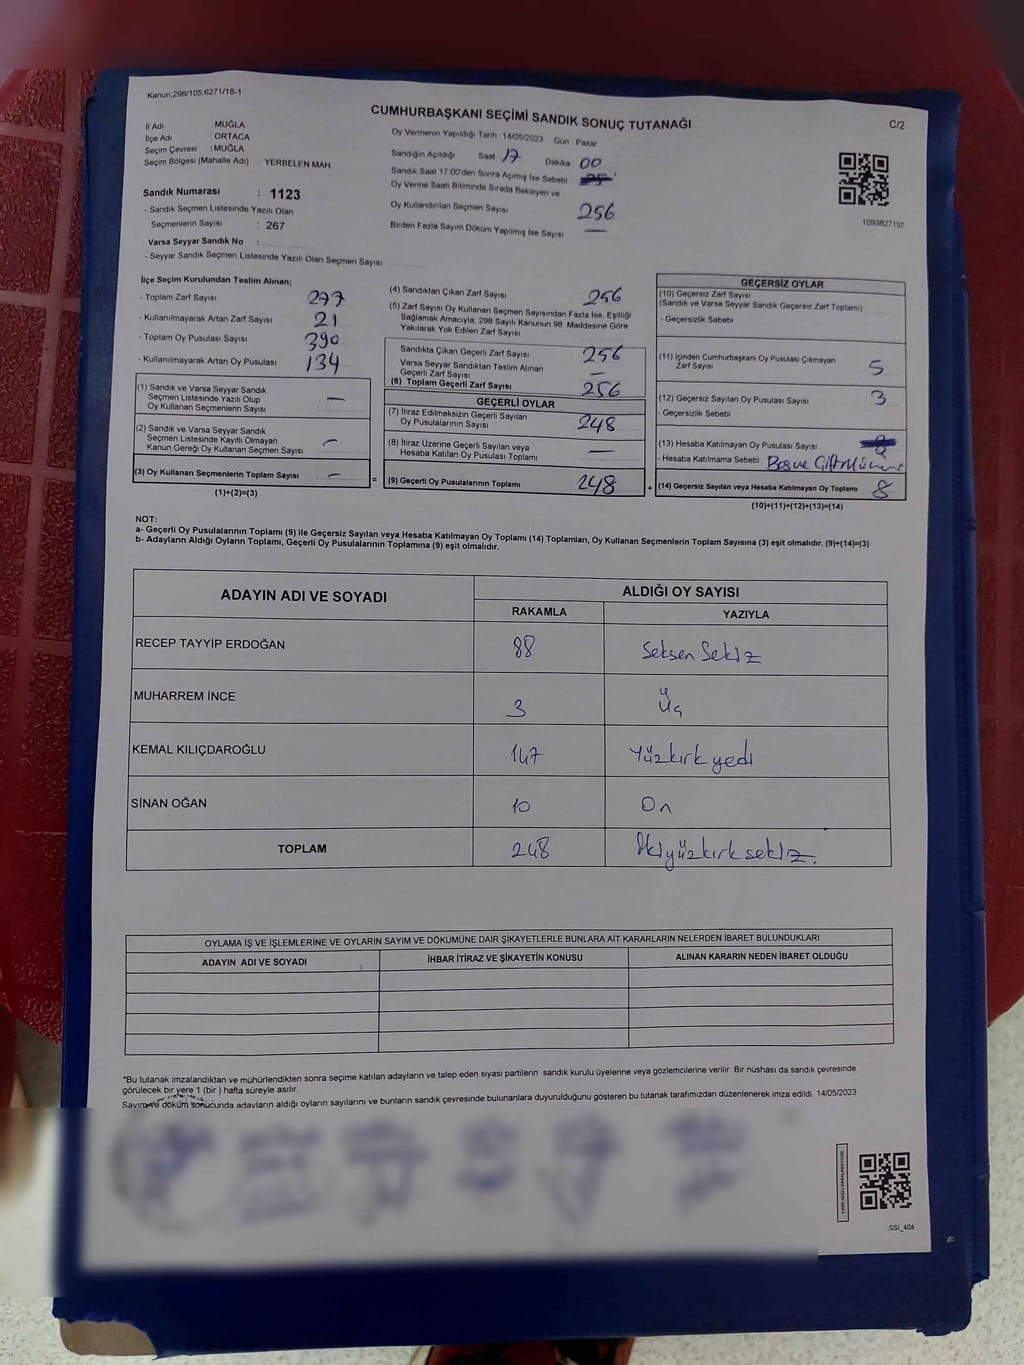 Kanun,298/105,6271/18-1
CUMHURBAŞKANI SEÇİMİ SANDIK SONUÇ TUTANAĞI
C/2
İl Adı MUĞLA
İlçe Adı ORTACA
Seçim Çevresi : MUĞLA
Seçim Bölgesi (Mahalle Adı) YERBELEN MAH.
Oy Vermenin Yapıldığı Tarih : 14/05/2023 Gün Pazar
Sandığın Açıldığı Saat 17 Dakika 00
Sandık Saat 17.00'den Sonra Açımış İse Sebebi
Oy Verme Saati Bitiminde Sırada Bekleyen ve
Oy Kullandırılan Seçmen Sayısı 256
Birden Fazla Sayım Döküm Yapılmış İse Sayısı —
1093827197
Sandık Numarası : 1123
- Sandık Seçmen Listesinde Yazılı Olan
Seçmenlerin Sayısı : 267
Varsa Seyyar Sandık No :
- Seyyar Sandık Seçmen Listesinde Yazılı Olan Seçmen Sayısı
İlçe Seçim Kurulundan Teslim Alınan;
- Toplam Zarf Sayısı 277
- Kullanılmayarak Artan Zarf Sayısı 21
- Toplam Oy Pusulası Sayısı 390
- Kullanılmayarak Artan Oy Pusulası 134
(1) Sandık ve Varsa Seyyar Sandık
Seçmen Listesinde Yazılı Olup
Oy Kullanan Seçmenlerin Sayısı —
(2) Sandık ve Varsa Seyyar Sandık
Seçmen Listesinde Kayıtlı Olmayan
Kanun Gereği Oy Kullanan Seçmen Sayısı —
(3) Oy Kullanan Seçmenlerin Toplam Sayısı —
(1)+(2)=(3)
(4) Sandıktan Çıkan Zarf Sayısı 256
(5) Zarf Sayısı Oy Kullanan Seçmen Sayısından Fazla İse, Eşitliği
Sağlamak Amacıyla, 298 Sayılı Kanunun 98. Maddesine Göre
Yakılarak Yok Edilen Zarf Sayısı
Sandıkta Çıkan Geçerli Zarf Sayısı 256
Varsa Seyyar Sandıktan Teslim Alınan
Geçerli Zarf Sayısı —
(6) Toplam Geçerli Zarf Sayısı 256
GEÇERLİ OYLAR
(7) İtiraz Edilmeksizin Geçerli Sayılan
Oy Pusulalarının Sayısı 248
(8) İtiraz Üzerine Geçerli Sayılan veya
Hesaba Katılan Oy Pusulası Toplamı —
= (9) Geçerli Oy Pusulalarının Toplamı 248 +
GEÇERSİZ OYLAR
(10) Geçersiz Zarf Sayısı
(Sandık ve Varsa Seyyar Sandık Geçersiz Zarf Toplamı)
- Geçersizlik Sebebi
(11) İçinden Cumhurbaşkanı Oy Pusulası Çıkmayan
Zarf Sayısı 5
(12) Geçersiz Sayılan Oy Pusulası Sayısı 3
- Geçersizlik Sebebi
(13) Hesaba Katılmayan Oy Pusulası Sayısı
- Hesaba Katılmama Sebebi
(14) Geçersiz Sayılan veya Hesaba Katılmayan Oy Toplamı 8
(10)+(11)+(12)+(13)=(14)
NOT:
a- Geçerli Oy Pusulalarının Toplamı (9) ile Geçersiz Sayılan veya Hesaba Katılmayan Oy Toplamı (14) Toplamları, Oy Kullanan Seçmenlerin Toplam Sayısına (3) eşit olmalıdır. (9)+(14)=(3)
b- Adayların Aldığı Oyların Toplamı, Geçerli Oy Pusulalarının Toplamına (9) eşit olmalıdır.
ADAYIN ADI VE SOYADI ALDIĞI OY SAYISI
RAKAMLA YAZIYLA
RECEP TAYYİP ERDOĞAN 88 Seksen Sekiz
MUHARREM İNCE 3 Üç
KEMAL KILIÇDAROĞLU 147 Yüzkırk yedi
SİNAN OĞAN 10 On
TOPLAM 248 İkiyüzkırk sekiz.
OYLAMA İŞ VE İŞLEMLERİNE VE OYLARIN SAYIM VE DÖKÜMÜNE DAİR ŞİKAYETLERLE BUNLARA AİT KARARLARIN NELERDEN İBARET BULUNDUKLARI
ADAYIN ADI VE SOYADI İHBAR İTİRAZ VE ŞİKAYETİN KONUSU ALINAN KARARIN NEDEN İBARET OLDUĞU
*Bu tutanak imzalandıktan ve mühürlendikten sonra seçime katılan adayların ve talep eden siyasi partilerin sandık kurulu üyelerine veya gözlemcilerine verilir. Bir nüshası da sandık çevresinde
görülecek bir yere 1 (bir ) hafta süreyle asılır.
Sayım ve döküm sonucunda adayların aldığı oyların sayılarını ve bunların sandık çevresinde bulunanlara duyurulduğunu gösteren bu tutanak tarafımızdan düzenlenerek imza edildi. 14/05/2023
SSI_404